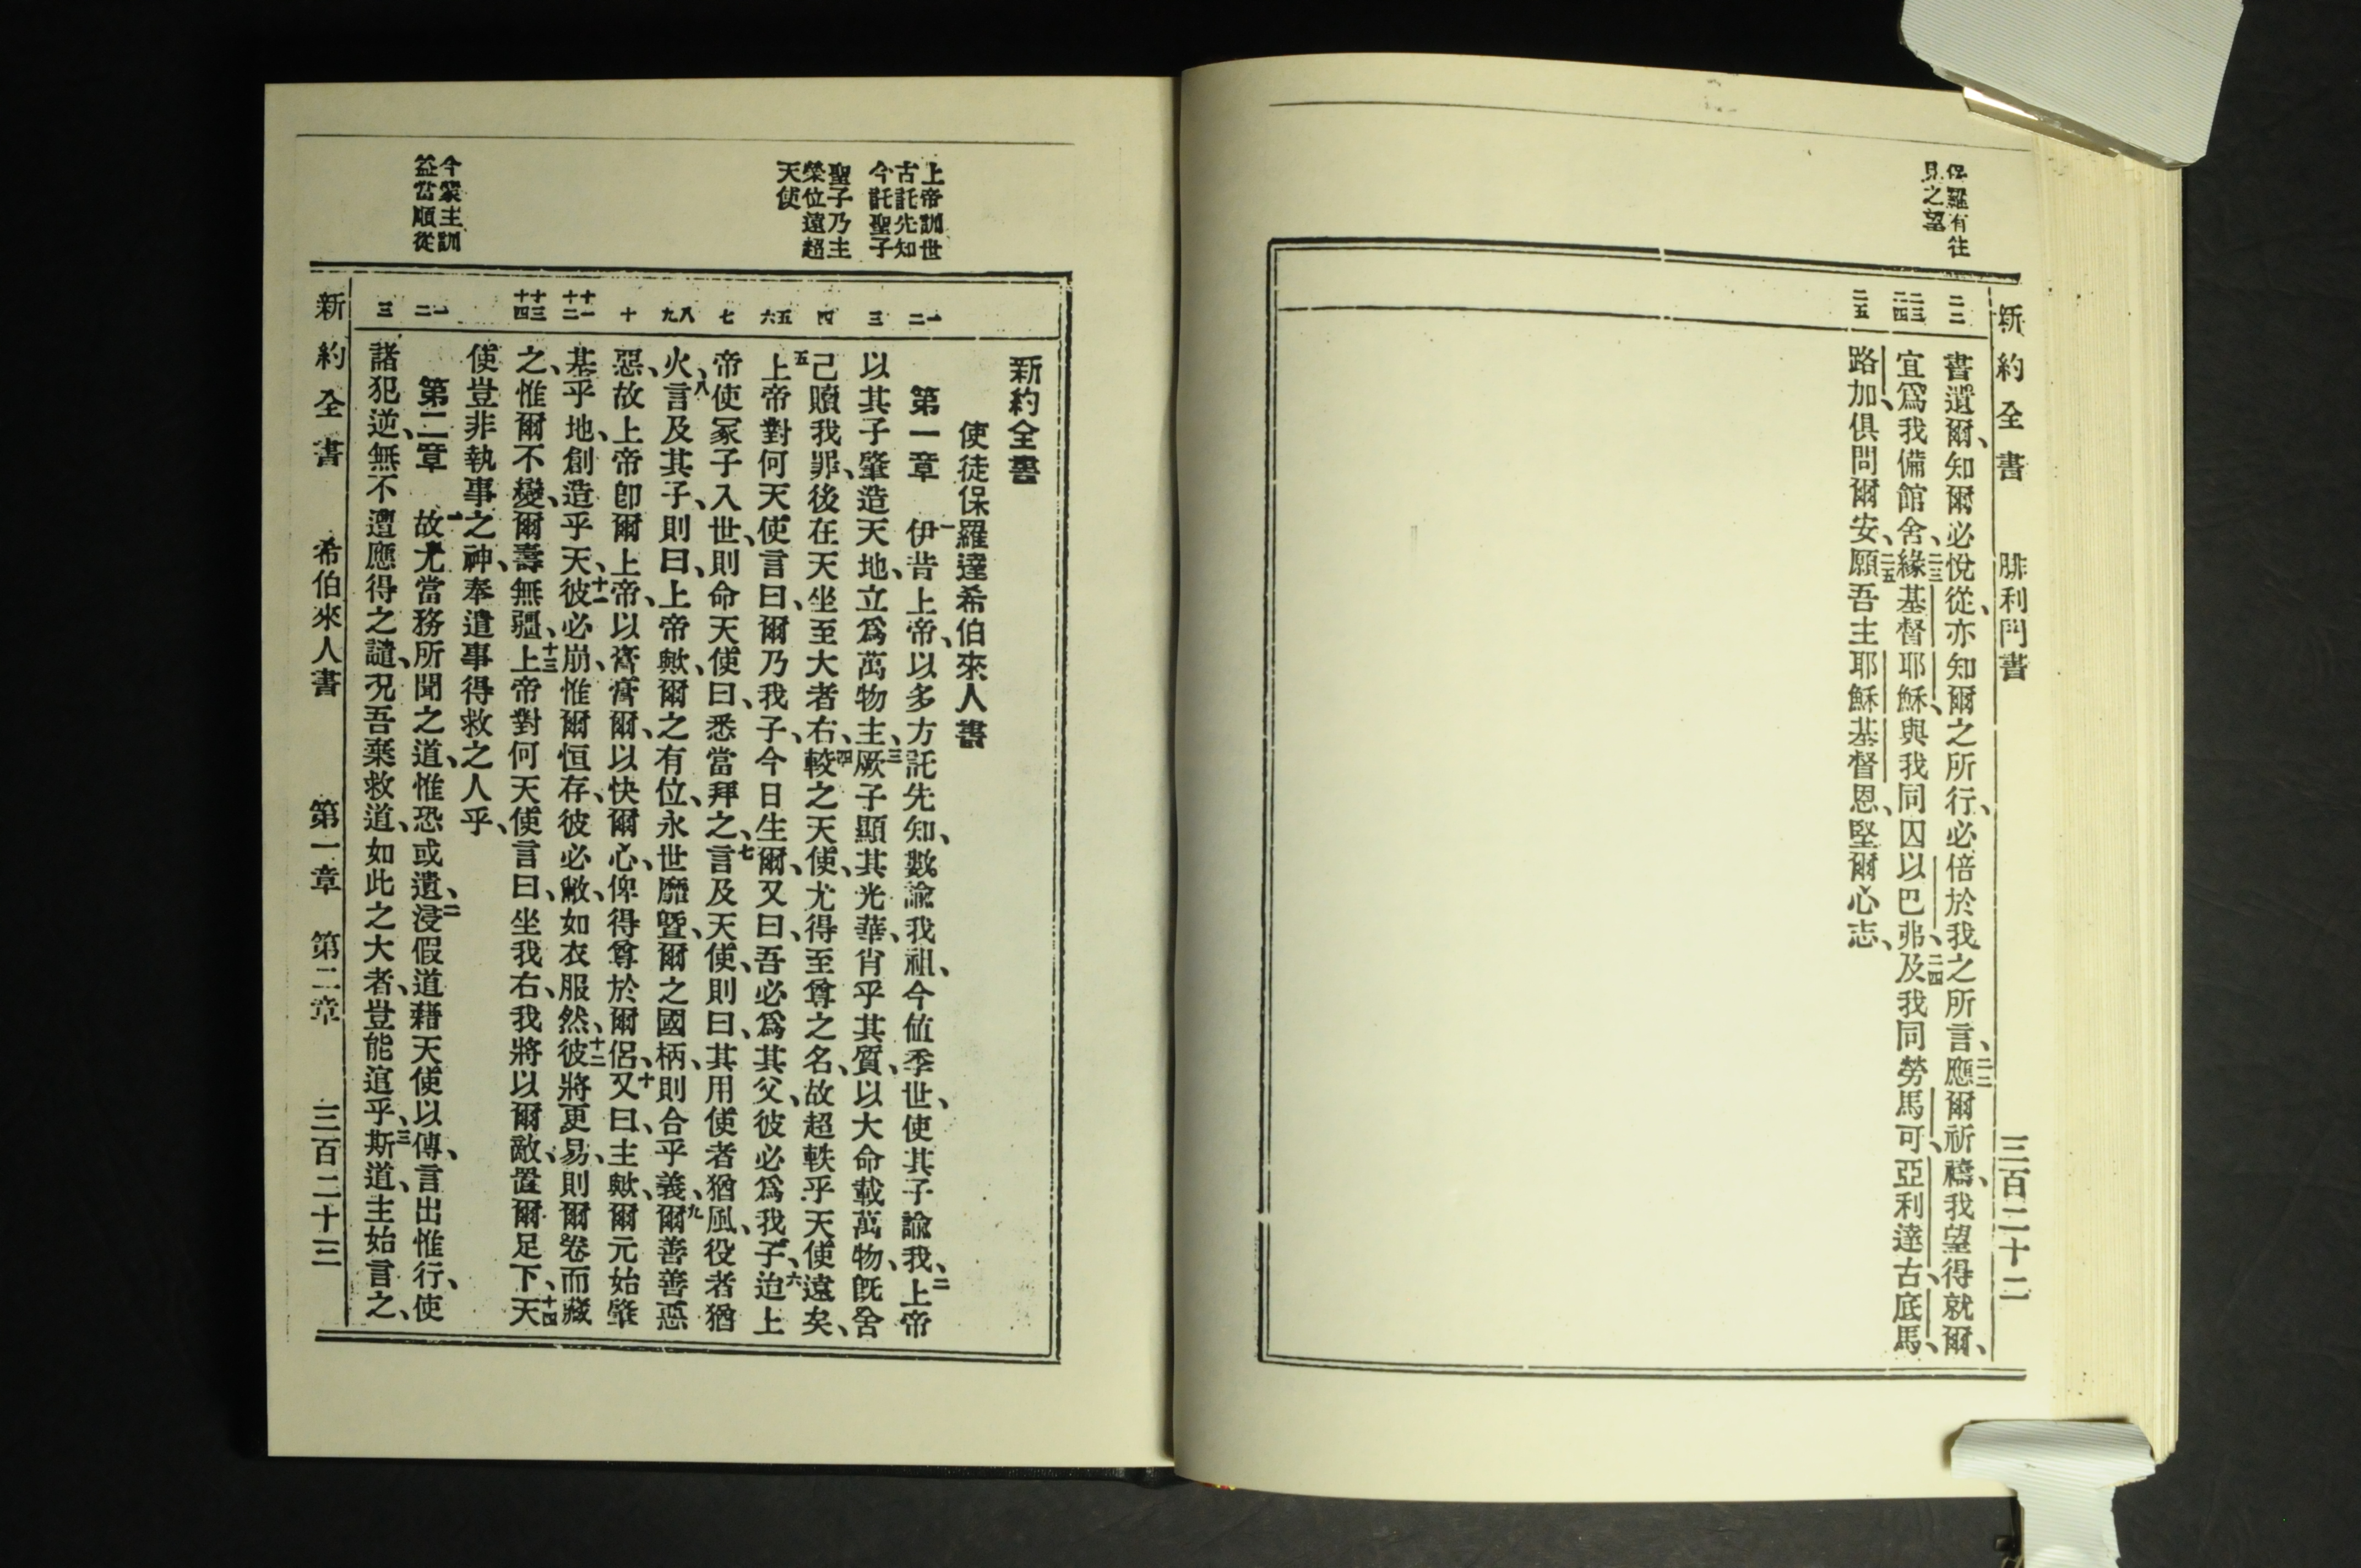 保羅有往
見之望
新約全書 腓利門書 三百二十二
二二
二三
二四
二五
書遺爾、知爾必悅從、亦知爾之所行、必倍於我之所言、二二應爾祈禱、我望得就爾、
宜爲我備館舍、二三緣基督耶穌、與我同囚以巴弗、二四及我同勞馬可、亞利達古、底馬、
路加、俱問爾安、二五願吾主耶穌基督恩、堅爾心志、
上帝訓世
古託先知
今託聖子
聖子乃主
榮位遠超
天使
今蒙主訓
益當順從
一
二
三
四
五
六
七
八
九
十
十一
十二
十三
十四
一
二
三
新約全書
使徒保羅達希伯來人書
第一章 一伊昔上帝、以多方託先知、數諭我祖、今值季世、使其子諭我、二上帝
以其子肇造天地、立爲萬物主、三厥子顯其光華、肖乎其質、以大命載萬物、旣舍
己贖我罪、後在天坐至大者右、四較之天使、尤得至尊之名、故超軼乎天使遠矣、
五上帝對何天使言曰、爾乃我子、今日生爾、又曰、吾必爲其父、彼必爲我子、六迨上
帝使冢子入世、則命天使曰、悉當拜之、七言及天使、則曰、其用使者猶風、役者猶
火、八言及其子、則曰、上帝歟、爾之有位、永世靡曁、爾之國柄、則合乎義、九爾善善惡
惡、故上帝卽爾上帝、以膏膏爾、以快爾心、俾得尊於爾侶、十又曰、主歟、爾元始肇
基乎地、創造乎天、十一彼必崩、惟爾恒存、彼必敝、如衣服然、十二彼將更易、則爾卷而藏
之、惟爾不變、爾壽無疆、十三上帝對何天使言曰、坐我右、我將以爾敵、置爾足下、十四天
使豈非執事之神、奉遣事得救之人乎、
第二章 一故尤當務所聞之道、惟恐或遺、二浸假道藉天使以傳、言出惟行、使
諸犯逆、無不遭應得之譴、况吾棄救道、如此之大者、豈能逭乎、三斯道、主始言之、
新約全書 希伯來人書 第一章 第二章 三百二十三